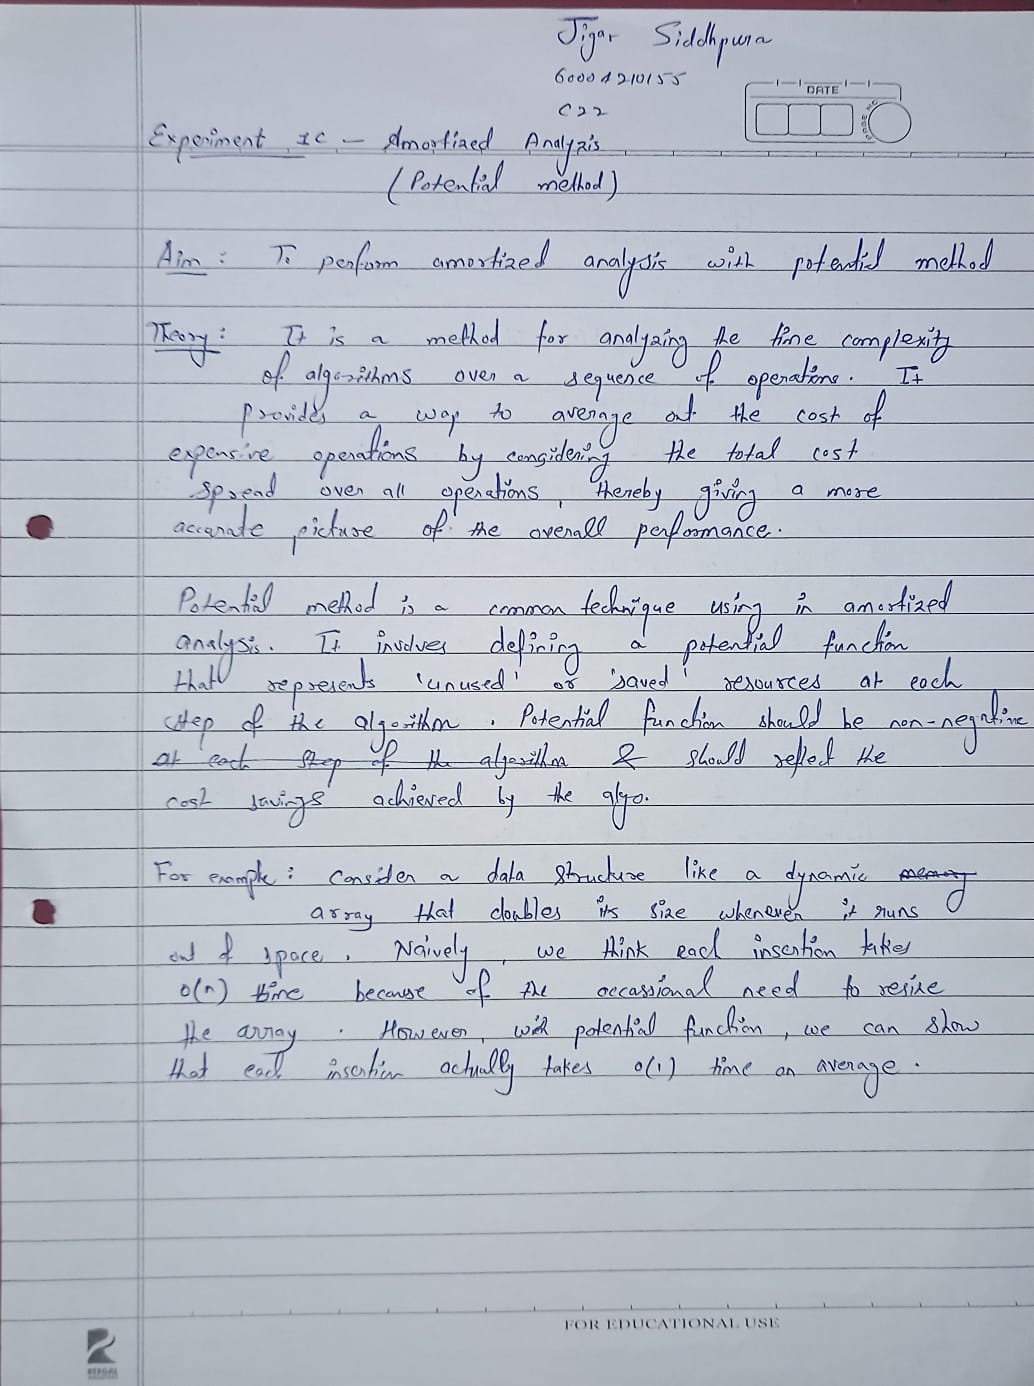 Jigar Siddhpura
60004210155
C22
DATE
PAGE NO
Experiment 1C - Amortized Analyzis
(Potential method)
Aim : To perform amortized analysis with potential method
Theory : It is a method for analyzing the time complexity
of algorithms over a sequence of operations. It
provides a way to average out the cost of
expensive operations by considering the total cost
spread over all operations, thereby giving a more
accurate picture of the overall performance.
Potential method is a common technique using in amortized
analysis. It involves defining a potential function
that represents 'unused' or 'saved' resources at each
step of the algorithm. Potential function should be non-negative
at each step of the algorithm & should reflect the
cost savings achieved by the algo.
For example : Consider a data structure like a dynamic memory
array that doubles its size whenever it runs
out of space. Naively, we think each insertion takes
O(n) time because of the occassional need to resize
the array. However, with potential function, we can show
that each insertion actually takes O(1) time on average.
FOR EDUCATIONAL USE